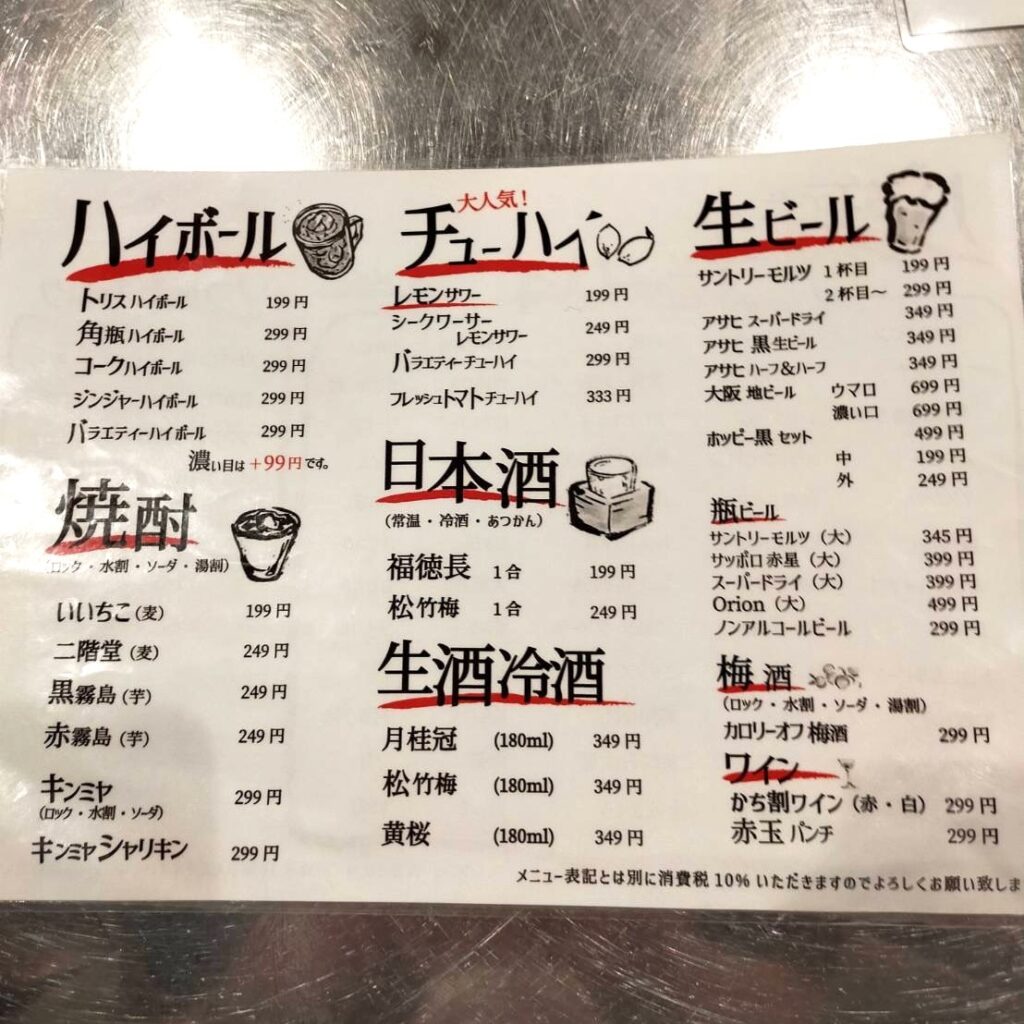 ハイボール
トリス ハイボール 199円
角瓶 ハイボール 299円
コークハイボール 299円
ジンジャーハイボール 299円
バラエティーハイボール 299円
濃い目は+99円です。
焼酎
(ロック・水割・ソーダ・湯割)
いいちこ(麦) 199円
二階堂(麦) 249円
黒霧島(芋) 249円
赤霧島(芋) 249円
キンミヤ 299円
(ロック・水割・ソーダ)
キンミヤシャリキン 299円
大人気!
チューハイ
レモンサワー 199円
シークワーサー
レモンサワー 249円
バラエティーチューハイ 299円
フレッシュトマトチューハイ 333円
日本酒
(常温・冷酒・あつかん)
福徳長 1合 199円
松竹梅 1合 249円
生酒冷酒
月桂冠 (180ml) 349円
松竹梅 (180ml) 349円
黄桜 (180ml) 349円
生ビール
サントリーモルツ 1杯目 199円
2杯目〜 299円
アサヒ スーパードライ 349円
アサヒ 黒生ビール 349円
アサヒ ハーフ&ハーフ 349円
大阪 地ビール ウマロ 699円
濃い口 699円
ホッピー黒 セット 499円
中 199円
外 249円
瓶ビール
サントリーモルツ(大) 345円
サッポロ赤星(大) 399円
スーパードライ(大) 399円
Orion(大) 499円
ノンアルコールビール 299円
梅酒
(ロック・水割・ソーダ・湯割)
カロリーオフ梅酒 299円
ワイン
かち割ワイン(赤・白) 299円
赤玉パンチ 299円
メニュー表記とは別に消費税10%いただきますのでよろしくお願い致しま